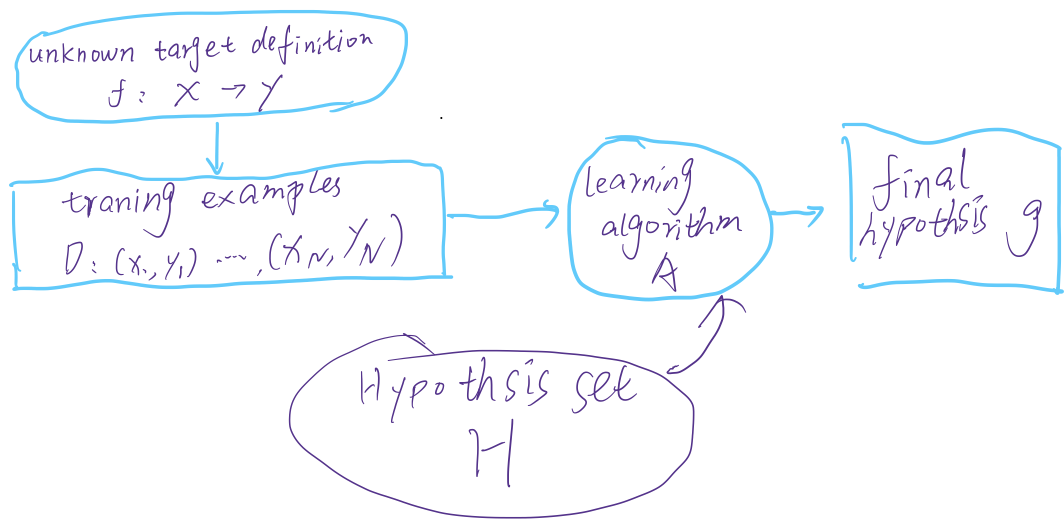 unknown target definition
f: X → Y
traning examples
D: (x₁, y₁) ...., (x_N, y_N)
learning
algorithm
A
final
hypothsis g
Hypothsis set
H